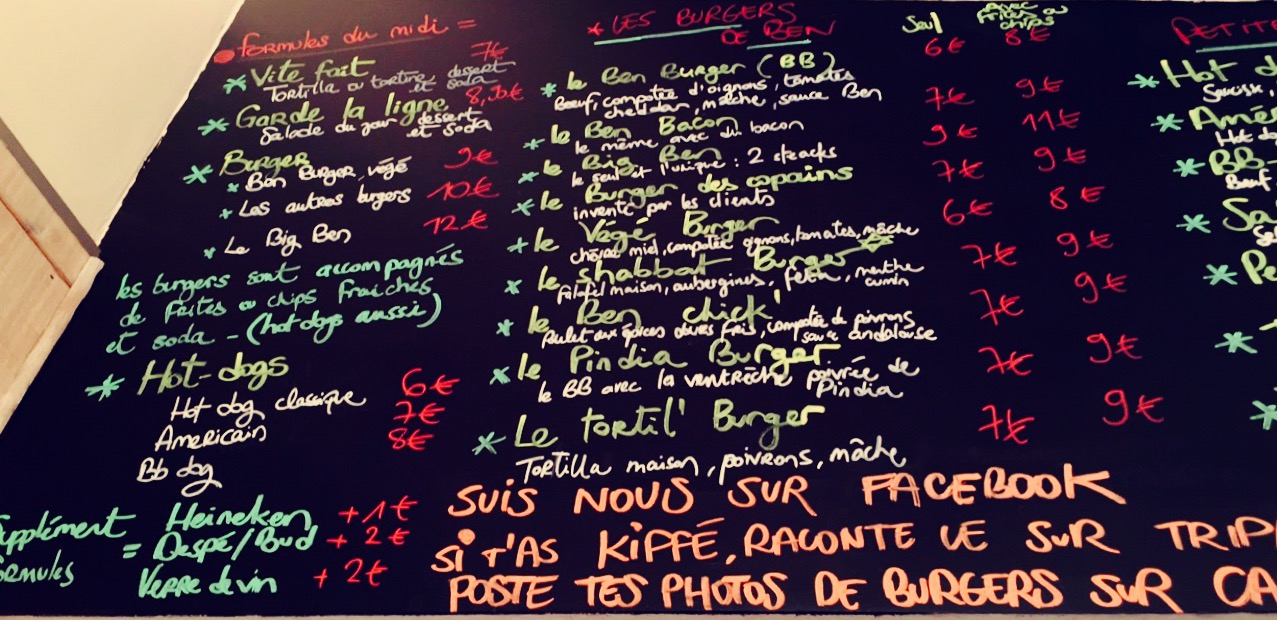 formules du midi =
* Vite fait 7€
Tortilla ou tartine, dessert et soda
* Garde la ligne 8,50€
Salade du jour dessert et soda
* Burger
* Ben Burger, végé 9€
* Les autres burgers 10€
* Le Big Ben 12€
les burgers sont accompagnés
de frites ou chips fraiches
et soda - (hot dogs aussi)
* Hot-dogs
Hot dog classique 6€
Americain 7€
Bb dog 8€
Supplément formules =
Heineken +1€
Despé/Bud +2€
Verre de vin +2€
* LES BURGERS DE BEN
Seul
Avec frites ou chips
* le Ben Burger (BB) 6€ 8€
Bœuf, compotée d'oignons, tomates
cheddar, mâche, sauce Ben
* le Ben Bacon 7€ 9€
le même avec du bacon
* le Big Ben 9€ 11€
le seul et l'unique : 2 steacks
* le Burger des copains 7€ 9€
inventé par les clients
* le Végé Burger 6€ 8€
chèvre miel, compotée oignons, tomates, mâche
* le shabbat Burger 7€ 9€
falafel maison, aubergines, feta, menthe
cumin
* le Ben chick' 7€ 9€
Poulet aux épices olives frais, compotée de poivrons
sauce andalouse
* le Pindia Burger 7€ 9€
le BB avec la ventrèche poivrée de
Pindia
* Le tortil' Burger 7€ 9€
Tortilla maison, poivrons, mâche
SUIS NOUS SUR FACEBOOK
SI T'AS KIFFÉ, RACONTE LE SUR TRIP
POSTE TES PHOTOS DE BURGERS SUR CA
PETIT
* Hot d
* Amé
Hot do
* BB-
Bœuf
* Sa
* Pe